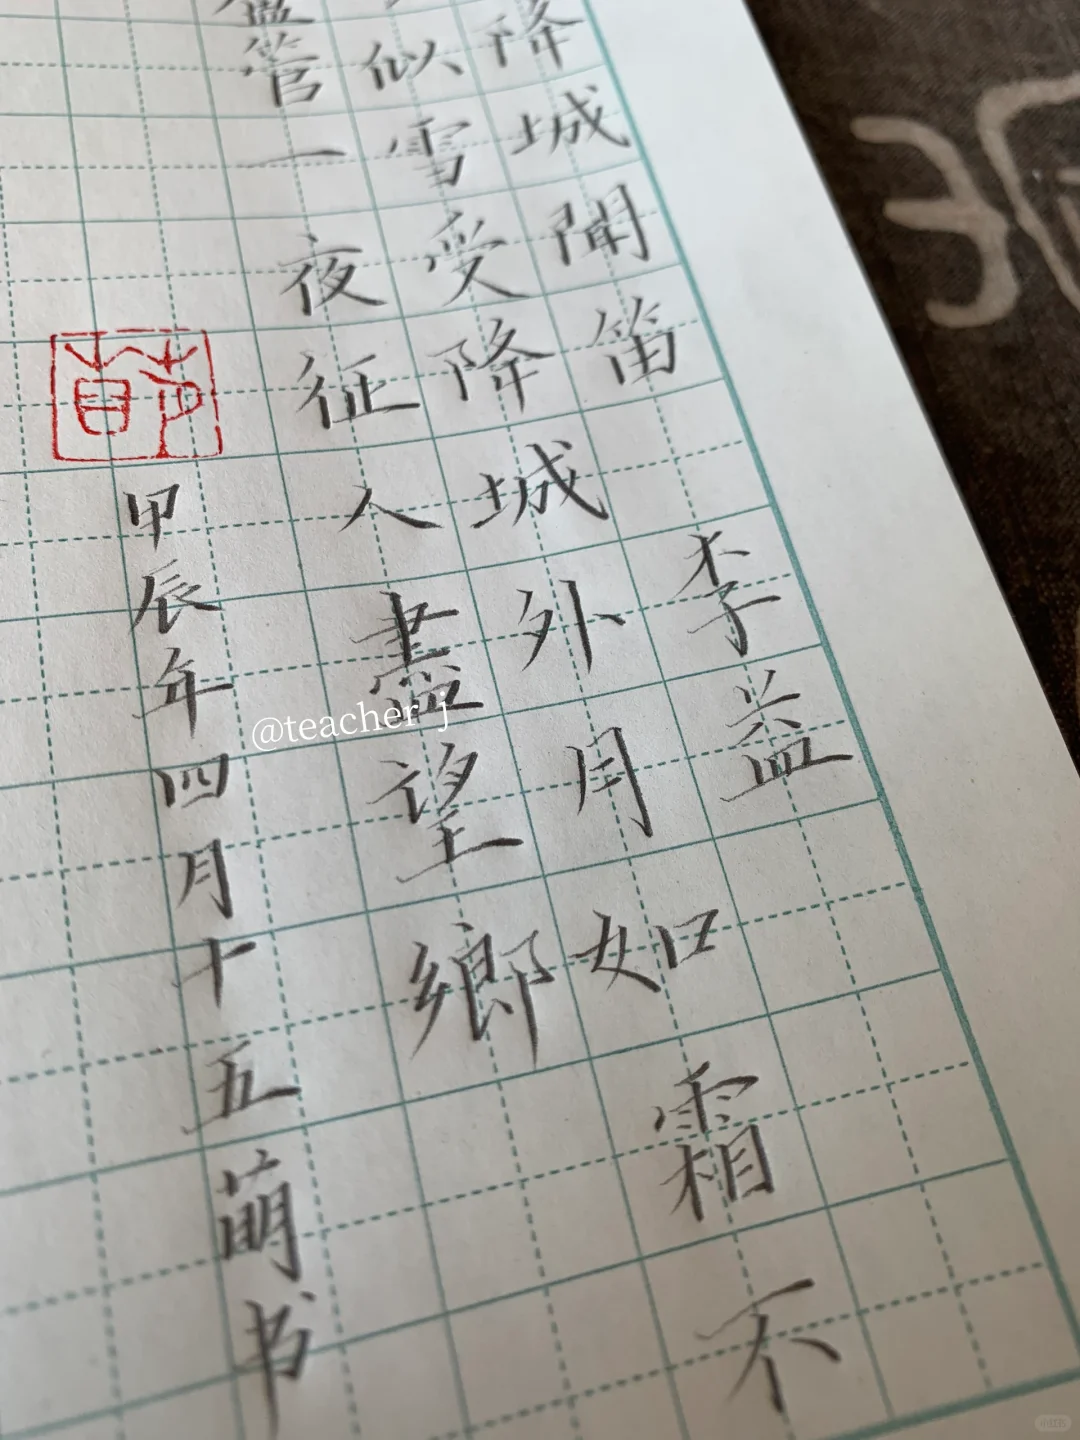 降城聞笛 李益
似雪受降城外月如霜不
管一夜征人盡望鄉
甲辰年四月十五萌书
@teacher_j